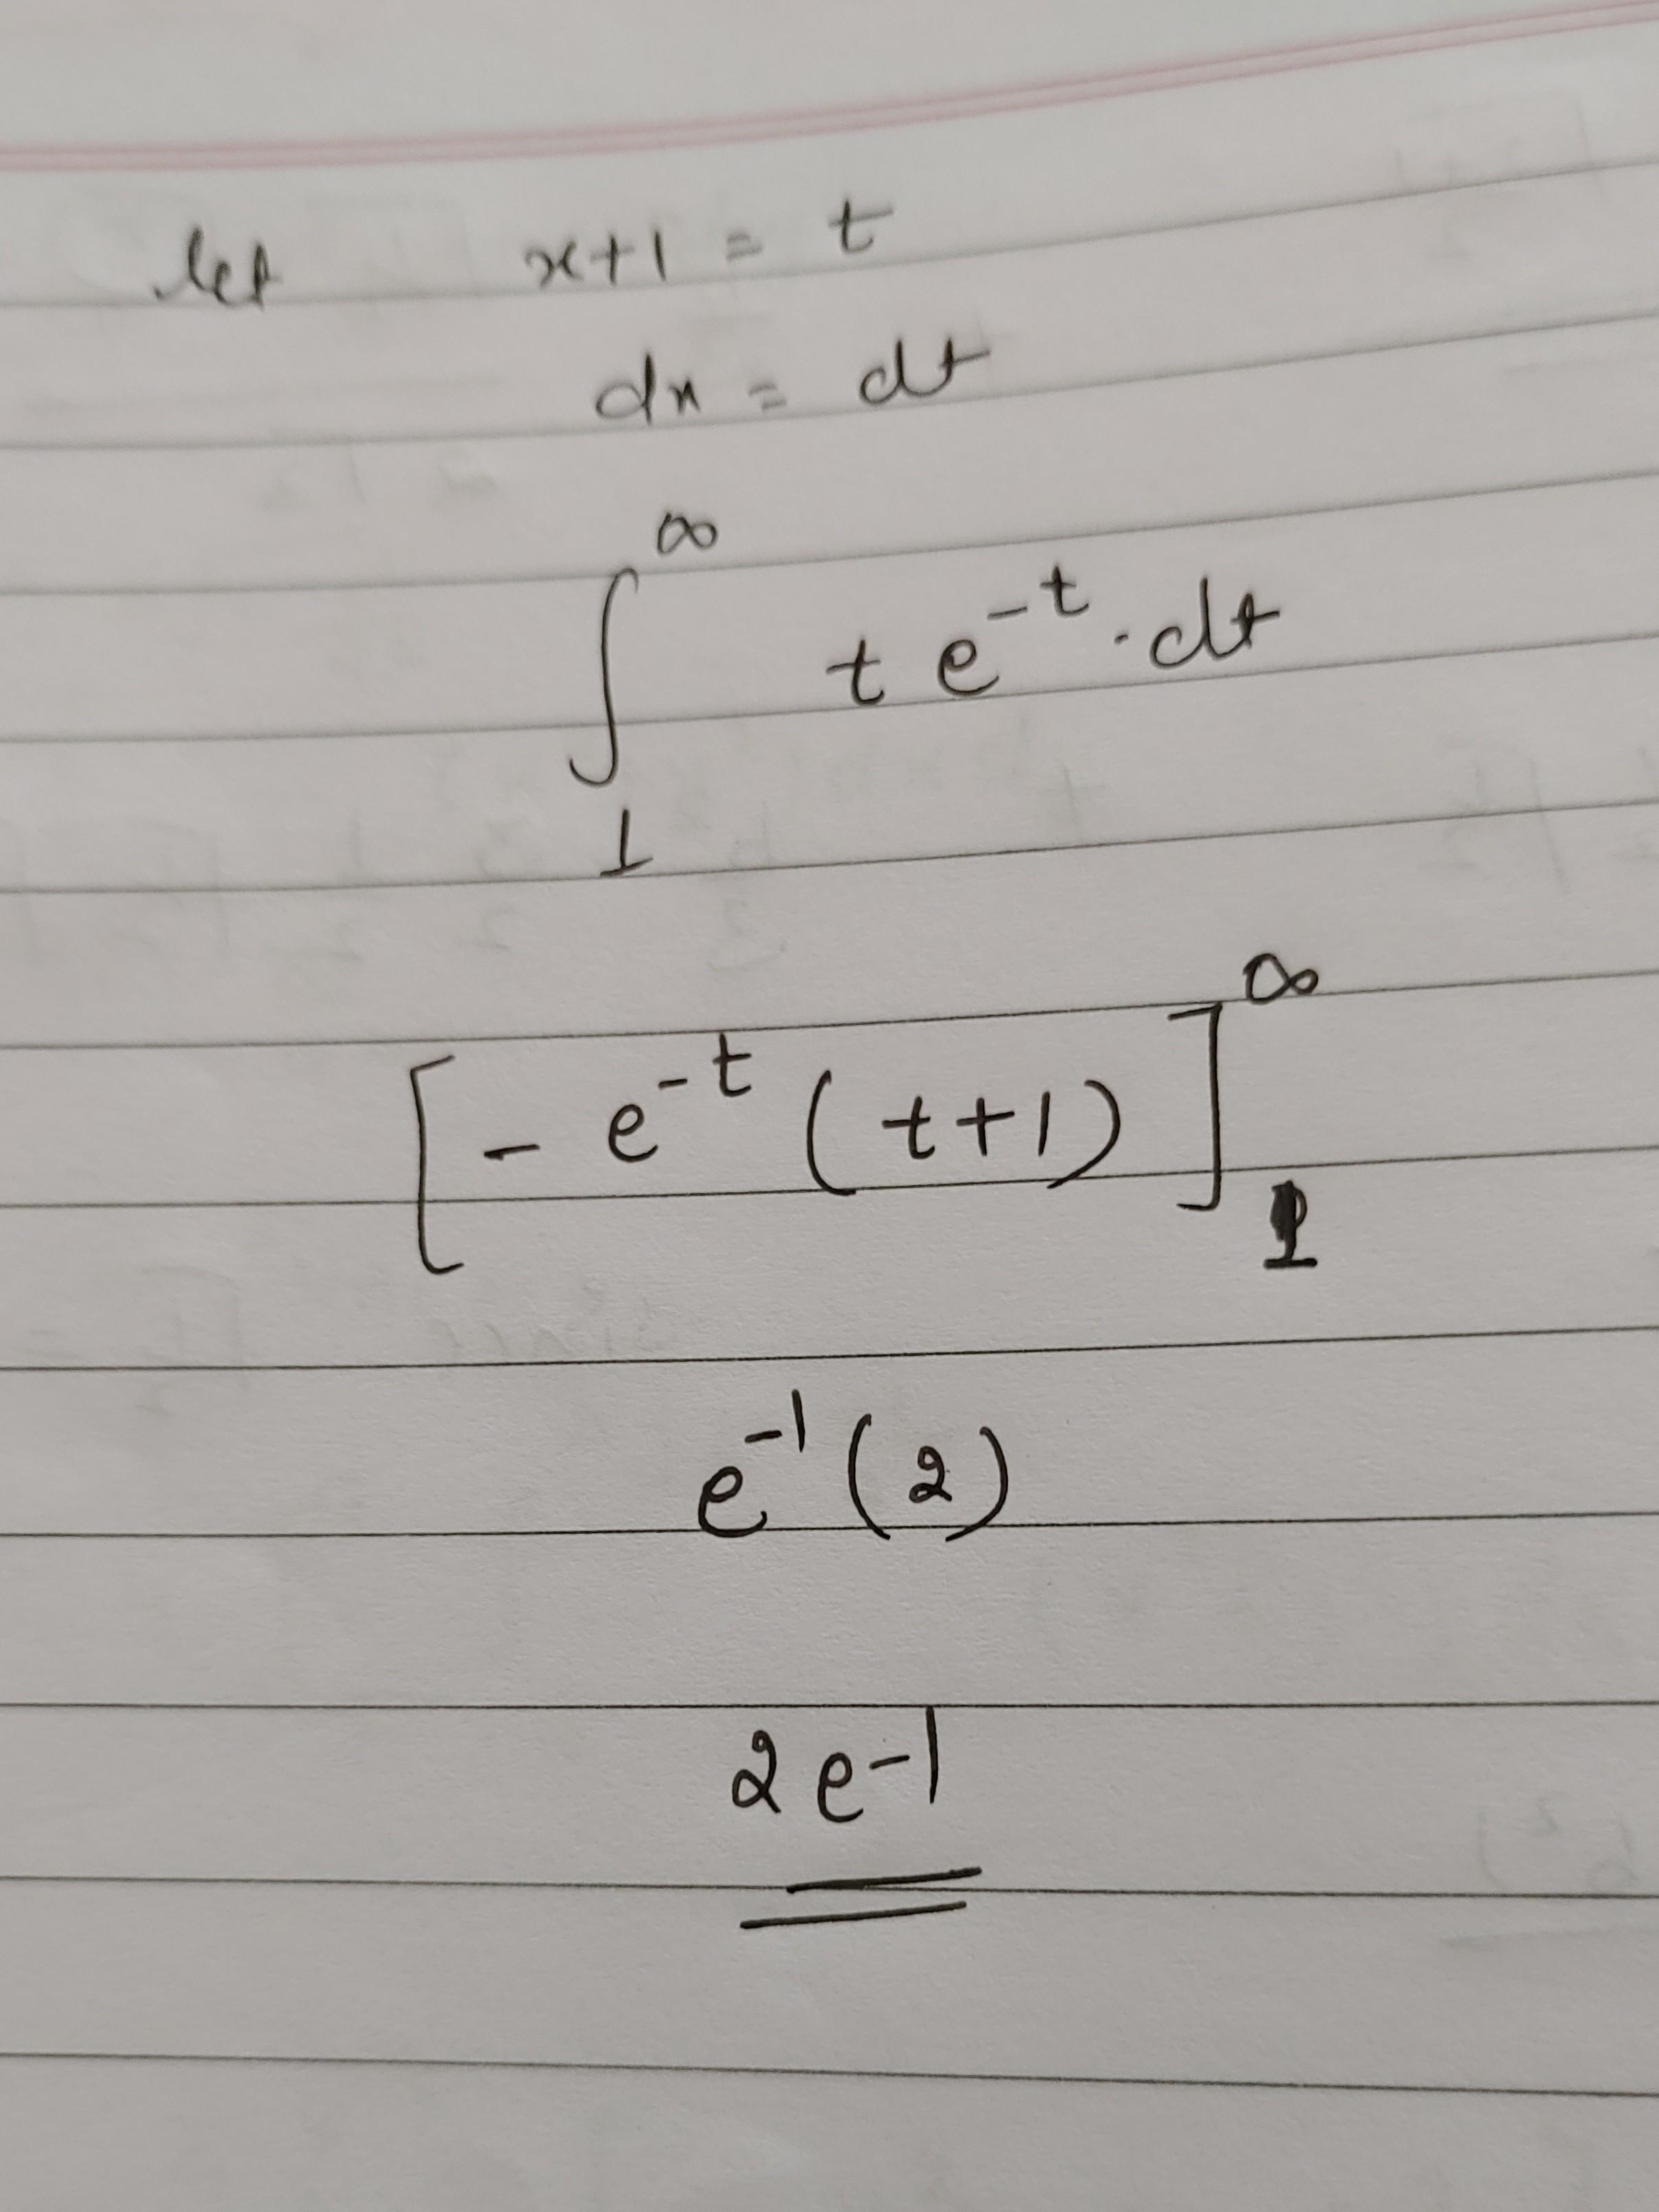 let x+1 = t
dx = dt
∫₁^∞ t e^{-t} . dt
[- e^{-t} (t+1)]₁^∞
e^{-1} (2)
2e-1